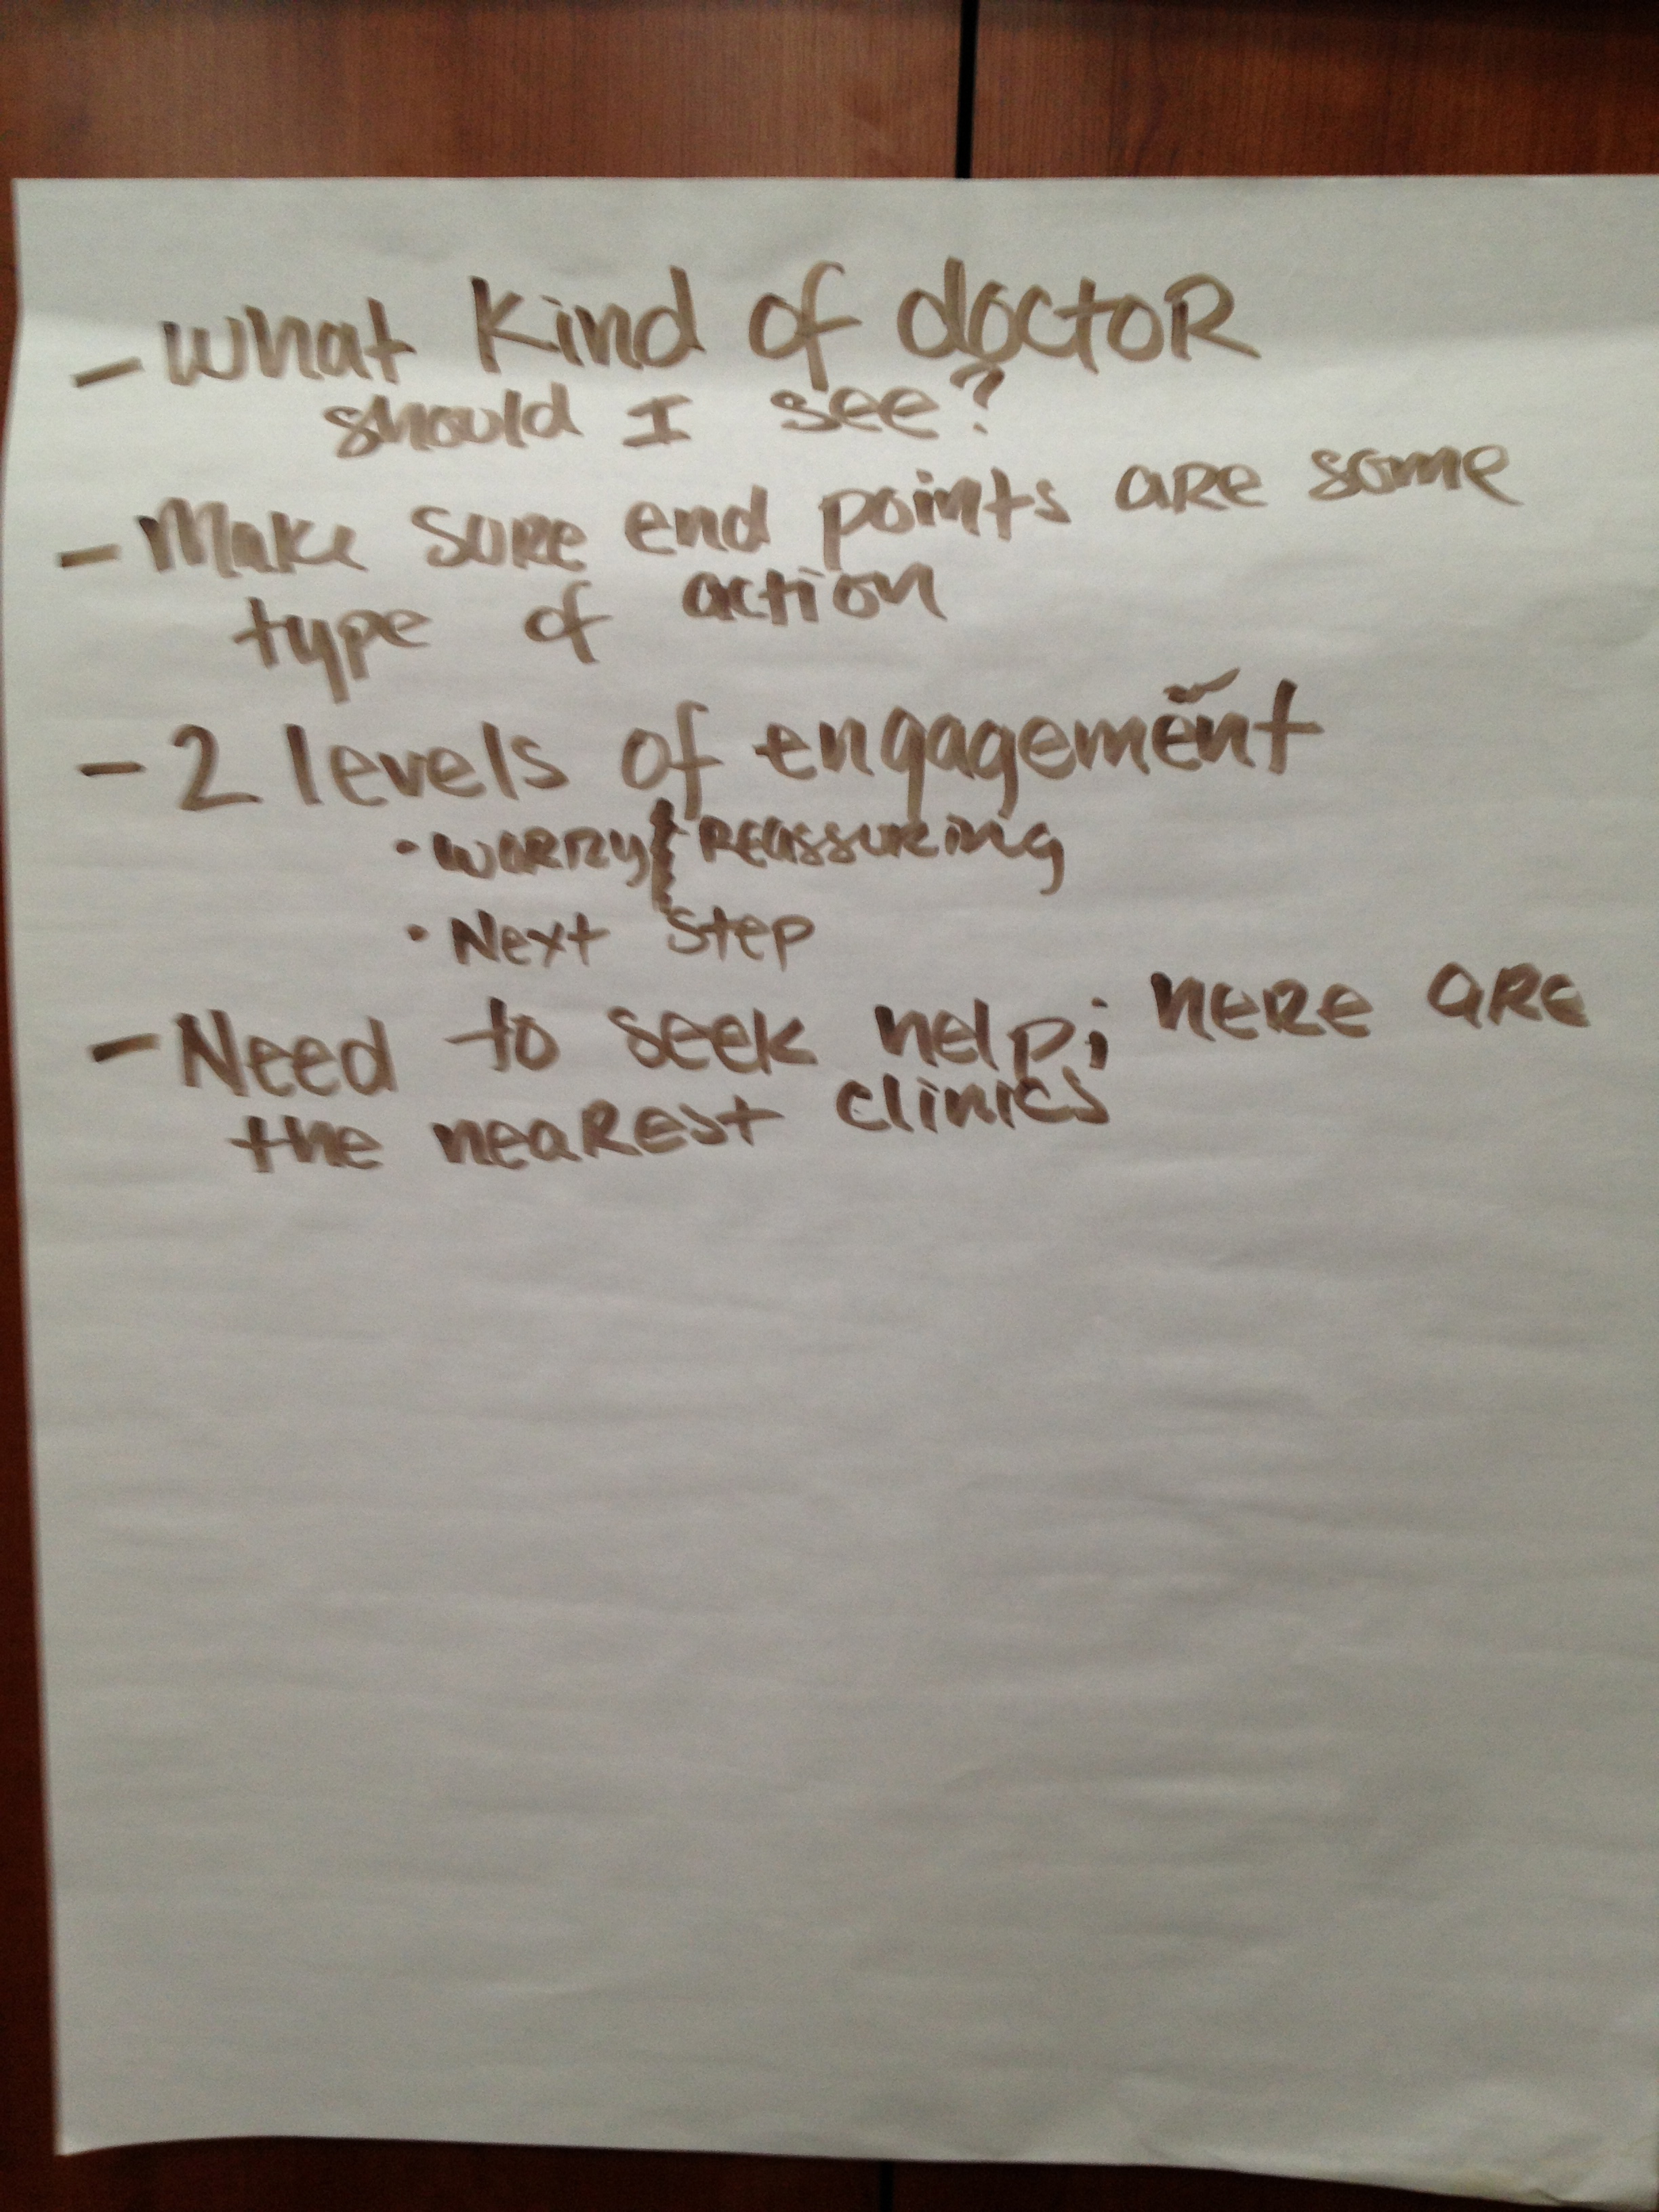 - What kind of doctor
should I see?
- Make sure end points are some
type of action
- 2 levels of engagement
• worry } reassuring
• Next step
- Need to seek help; here are
the nearest clinics